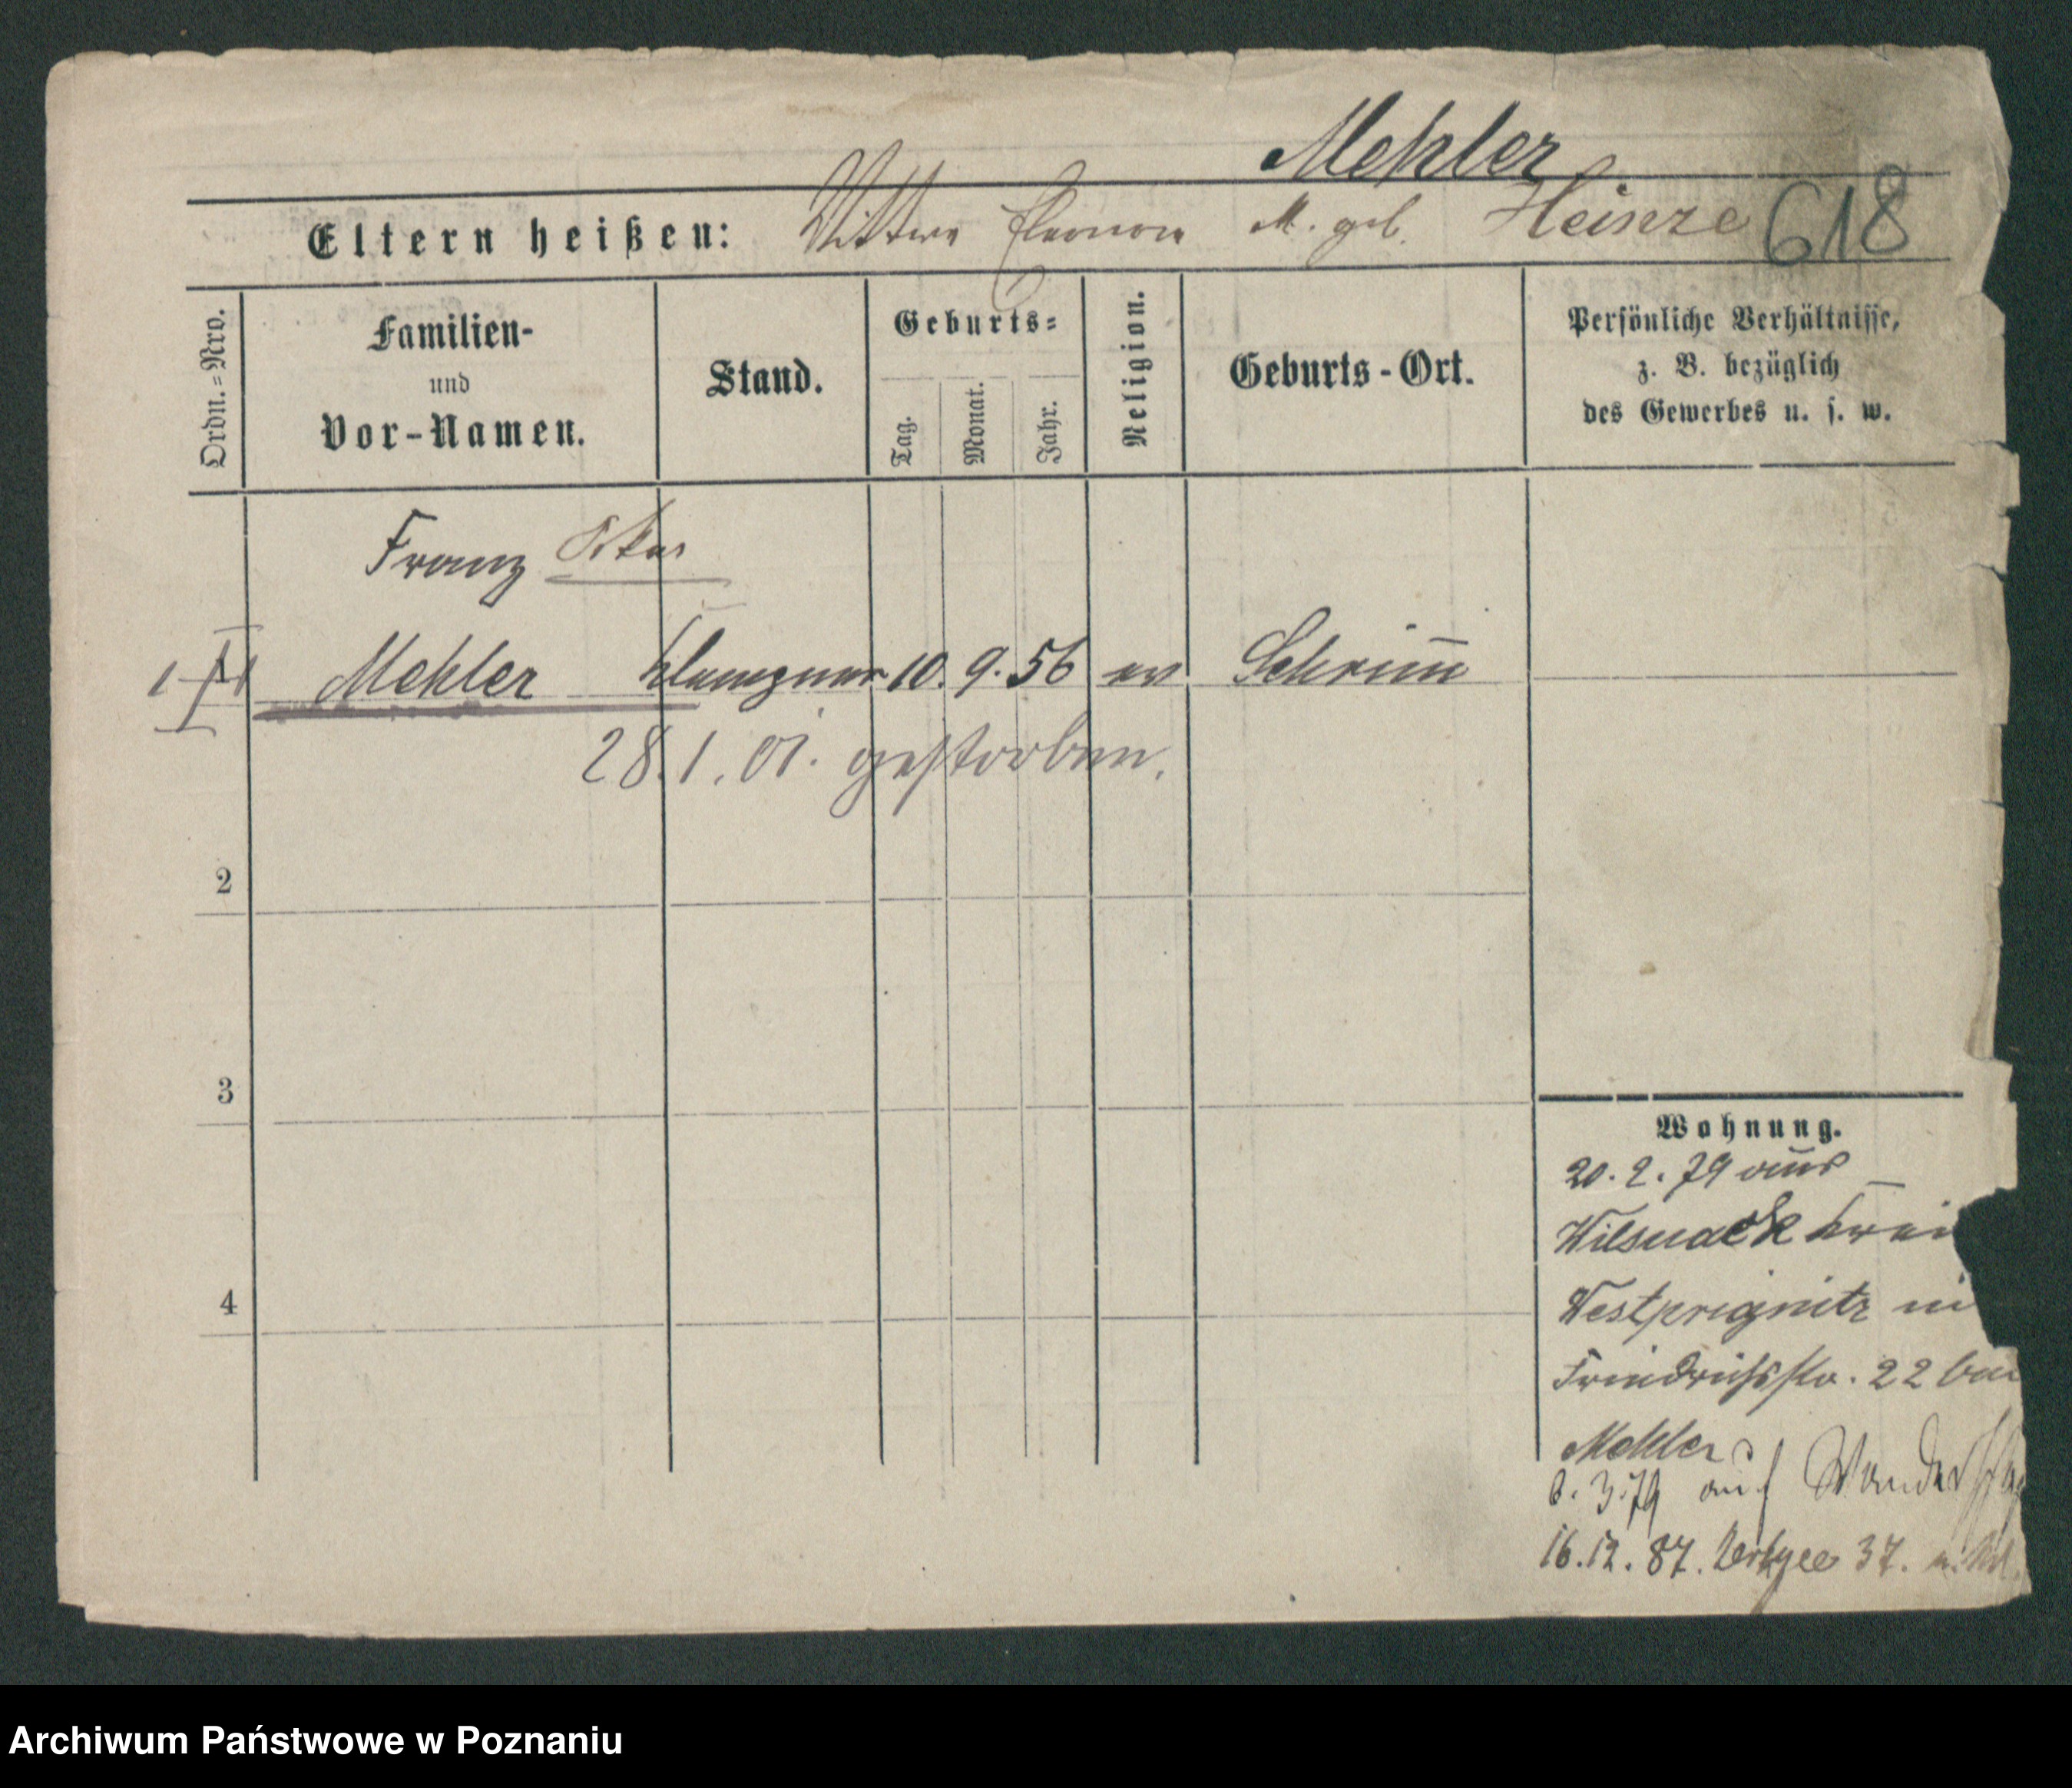 Mehler
Eltern heißen: Wittwe Eleonore M. geb. Heinze 618
Ordn.=Nro.
Familien-
und
Vor-Namen.
Stand.
Geburts=
Tag.
Monat.
Jahr.
Religion.
Geburts-Ort.
Persönliche Verhältnisse,
z. B. bezüglich
des Gewerbes u. s. w.
Franz Oskar
1 Mehler Klempner 10. 9. 56 ev Schrim̄
28.1.01. gestorben.
2
3
4
Wohnung.
20. 2. 79 aus
Wilsnack Krei
Westprignitz
Friedrichsstr. 22 bei
Mehler
6. 3. 79 auf
16.12.87. 37.
Archiwum Państwowe w Poznaniu